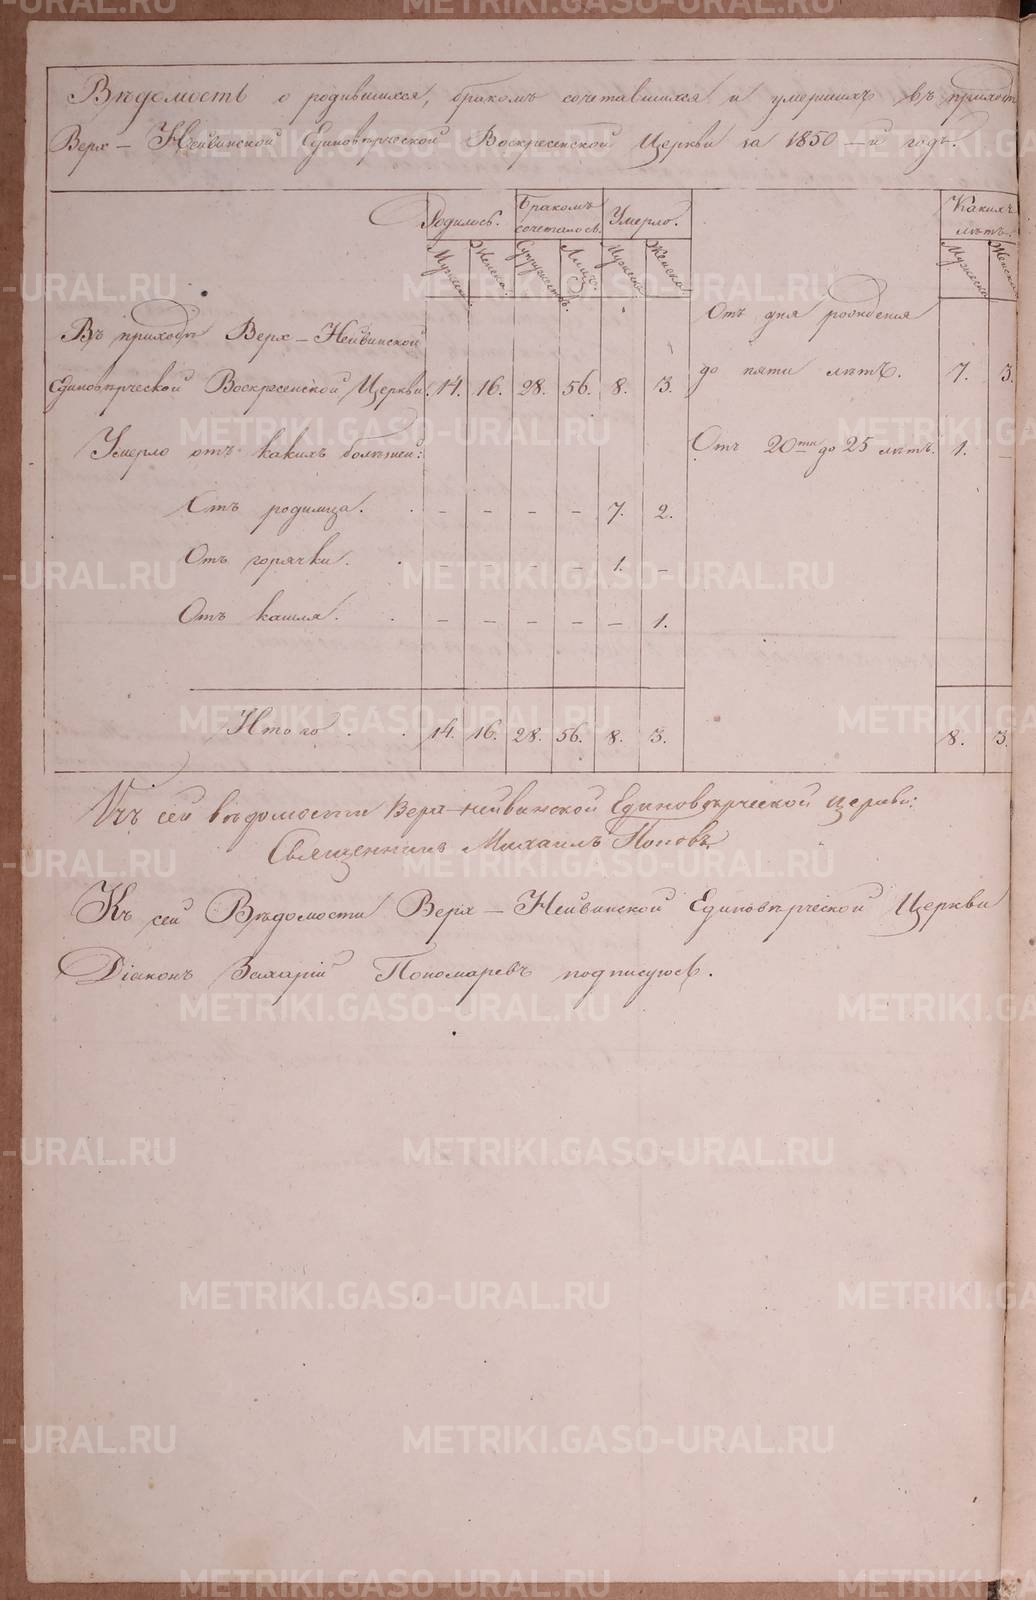 Вѣдомость о родившихся, бракомъ сочетавшихся и умершихъ въ приходѣ
Верх-Нейвинской Единовѣрческой Воскресенской Церкви за 1850-й годъ.
Родилось. Бракомъ сочеталось. Умерло. Какихъ лѣтъ.
Мужеска. Женска. Супружествъ. Лицъ. Мужеска. Женска. Мужеска. Женска.
Отъ дня рожденія
Въ приходѣ Верх-Нейвинской
Единовѣрческой Воскресенской Церкви. 14. 16. 28. 56. 8. 3. до пяти лѣтъ. 7. 3.
Умерло отъ какихъ болѣзней: Отъ 20ти до 25 лѣтъ. 1. –
Отъ родимца. – – – – 7. 2.
Отъ горячки. – – – – 1. –
Отъ кашля. – – – – – 1.
Итого 14. 16. 28. 56. 8. 3. 8. 3.
Къ сей вѣдомости Верх-Нейвинской Единовѣрческой церкви:
Священникъ Михаилъ Поповъ
Къ сей Вѣдомости Верх-Нейвинской Единовѣрческой Церкви
Діаконъ Захарій Пономаревъ подписуюсь.
METRIKI.GASO-URAL.RU